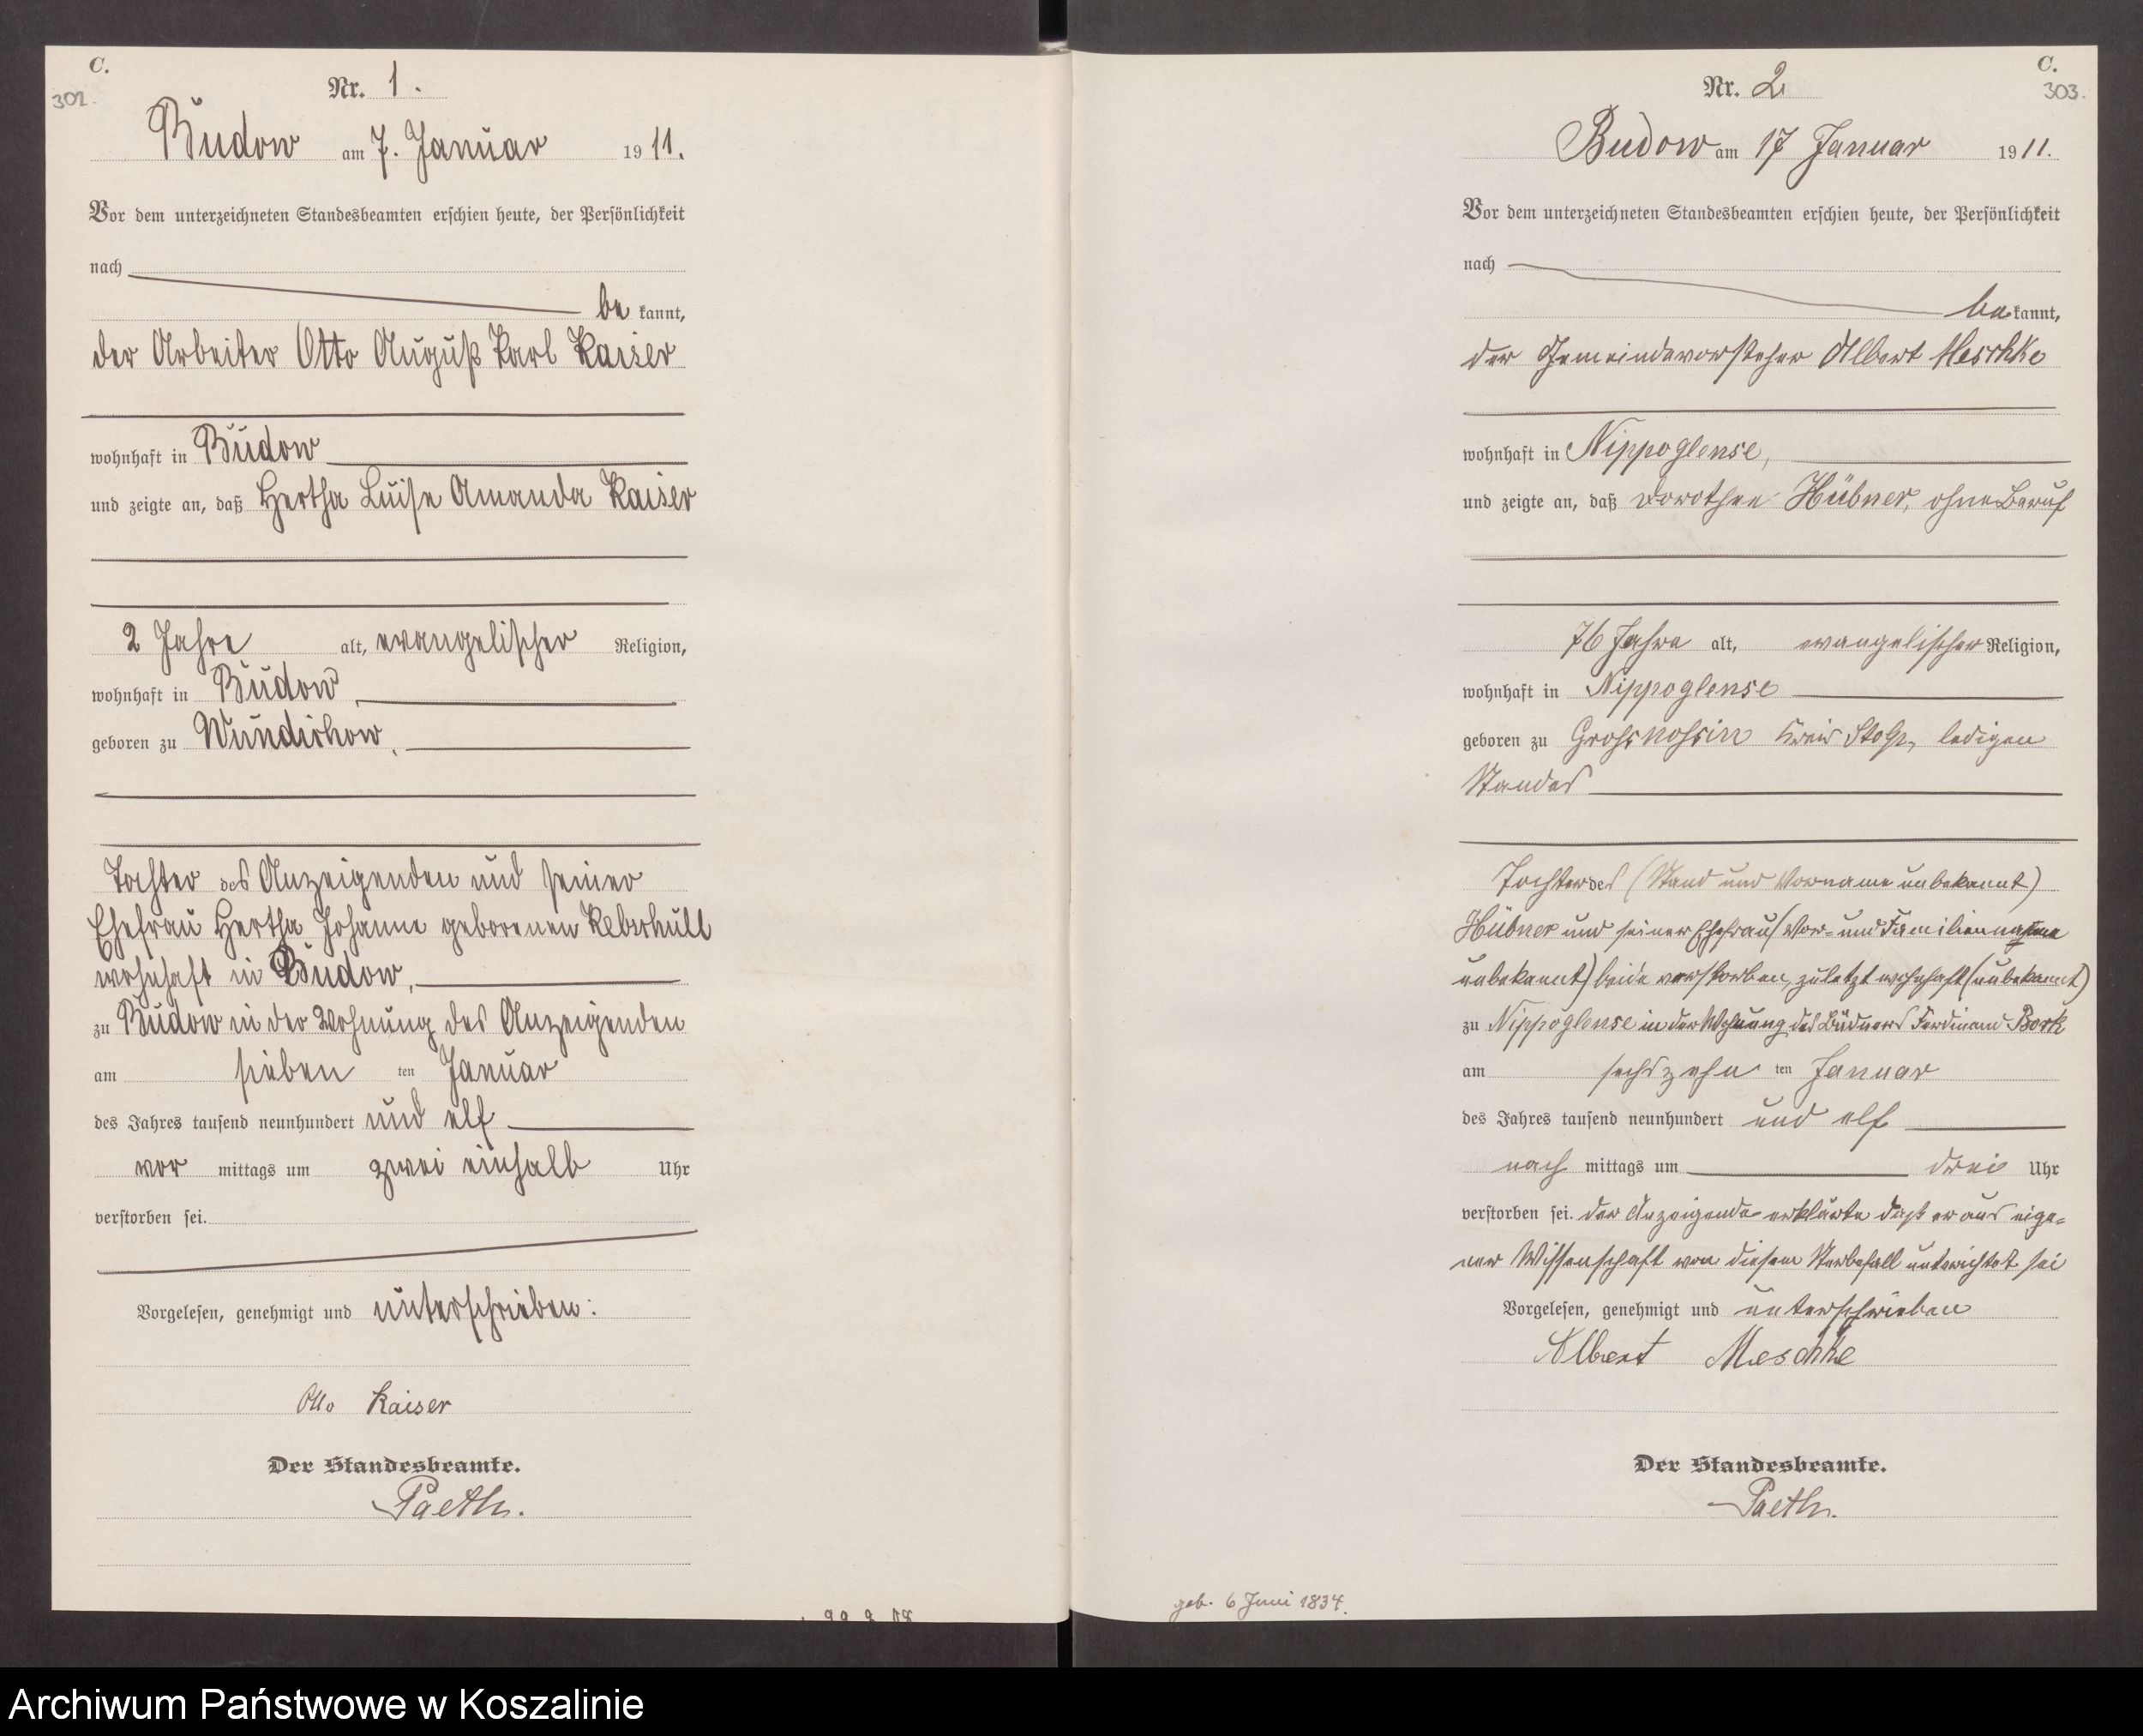 C.
302.
Nr. 1.
Budow am 7. Januar 1911.
Vor dem unterzeichneten Standesbeamten erschien heute, der Persönlichkeit
nach
be kannt,
der Arbeiter Otto August Karl Kaiser
wohnhaft in Budow
und zeigte an, daß Hertha Luise Amanda Kaiser
2 Jahre alt, evangelischer Religion,
wohnhaft in Budow,
geboren zu Wundichow,
Tochter des Anzeigenden und seiner
Ehefrau Hertha Johanne geborenen
wohnhaft in Budow,
zu Budow in der Wohnung des Anzeigenden
am sieben ten Januar
des Jahres tausend neunhundert und elf
vor mittags um zwei einhalb Uhr
verstorben sei.
Vorgelesen, genehmigt und unterschrieben:
Otto Kaiser
Der Standesbeamte.
Paeth.
C.
303.
Nr. 2
Budow am 17 Januar 1911.
Vor dem unterzeichneten Standesbeamten erschien heute, der Persönlichkeit
nach
be kannt,
der Gemeindevorsteher Albert Meschke
wohnhaft in Nippoglense,
und zeigte an, daß Dorothee Hübner, ohne Beruf
76 Jahre alt, evangelischer Religion,
wohnhaft in Nippoglense
geboren zu Grossnossin Kreis Stolp, ledigen
Standes
Tochter des (Stand und Vorname unbekannt)
Hübner und seiner Ehefrau (Vor- und Familienname
unbekannt) beide verstorben, zuletzt wohnhaft (unbekannt)
zu Nippoglense in der Wohnung des Büdners Ferdinand Bork
am sechszehn ten Januar
des Jahres tausend neunhundert und elf
nach mittags um drei Uhr
verstorben sei. Der Anzeigende erklärte daß er aus eige=
ner Wissenschaft von diesem Sterbefall unterichtet sei
Vorgelesen, genehmigt und unterschrieben
Albert Meschke
Der Standesbeamte.
Paeth.
geb. 6 Juni 1834.
Archiwum Państwowe w Koszalinie